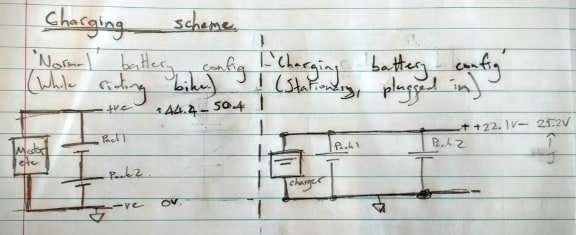 Charging scheme
'Normal' battery config
(While riding bike)
+ve +44.2 - 50.4
Pack 1
Motor
etc
Pack 2
-ve 0v.
'Charging battery config'
(Stationary, plugged in)
+ +22.1V - 25.2V
Pack 1
Pack 2
charger
-